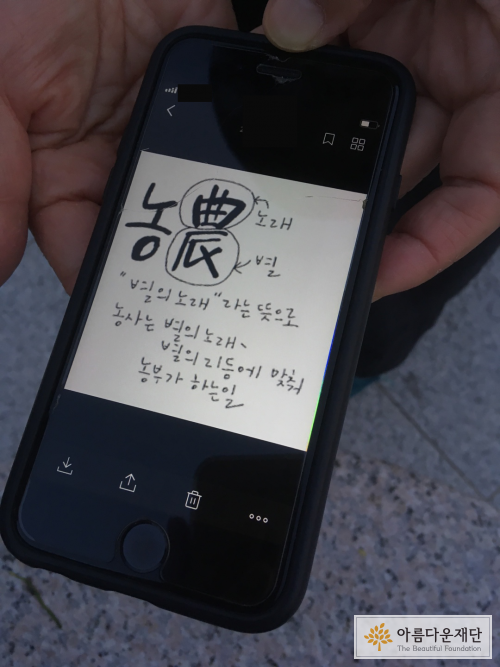 농 農
노래
별
"별의 노래"라는 뜻으로
농사는 별의 노래、
별의 리듬에 맞춰
농부가 하는일
아름다운재단
The Beautiful Foundation